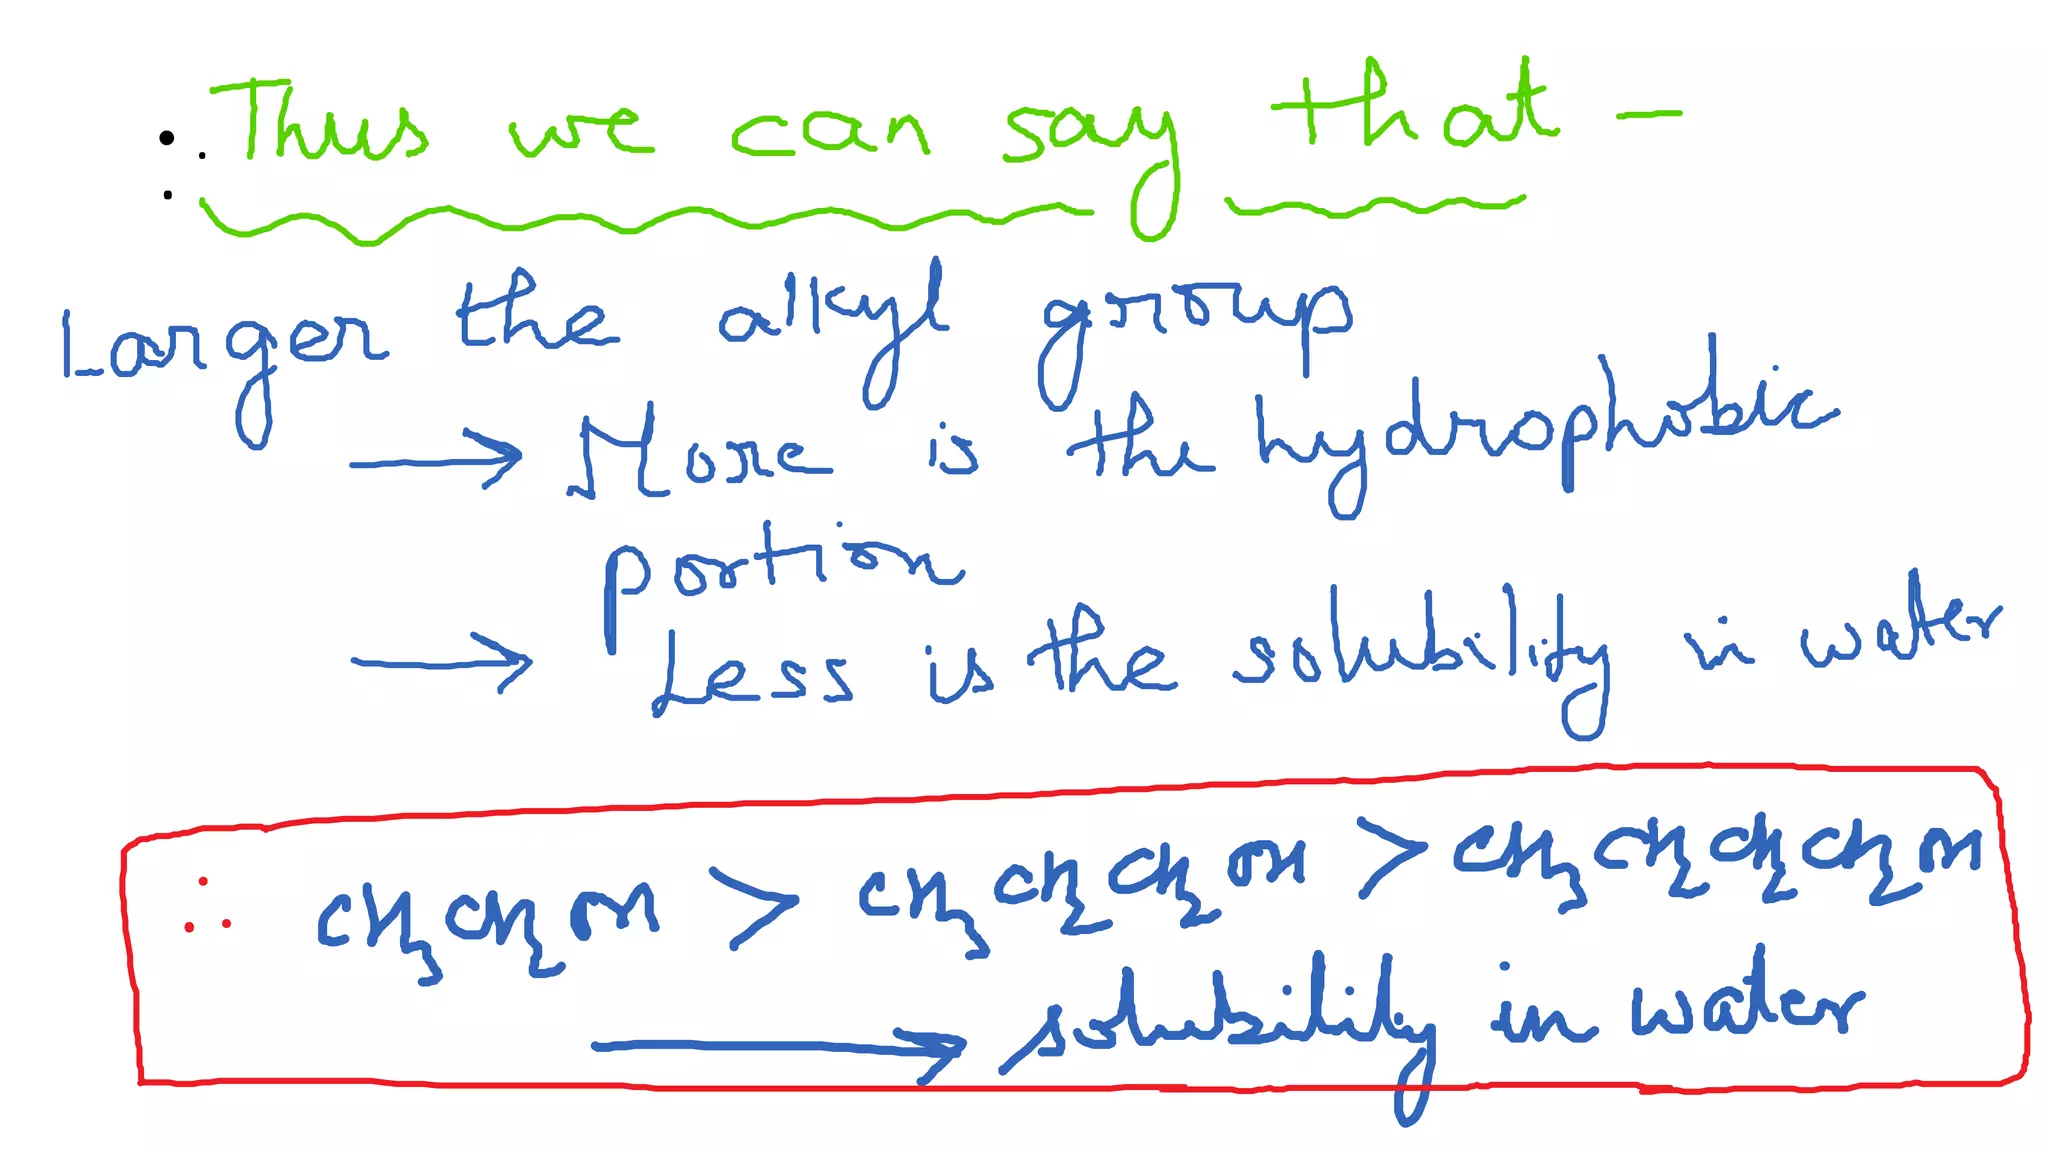 ∴ Thus we can say that –
Larger the alkyl group
→ More is the hydrophobic
portion
→ Less is the solubility in water
∴ CH₃CH₂OH > CH₃CH₂CH₂OH > CH₃CH₂CH₂CH₂OH
→ solubility in water